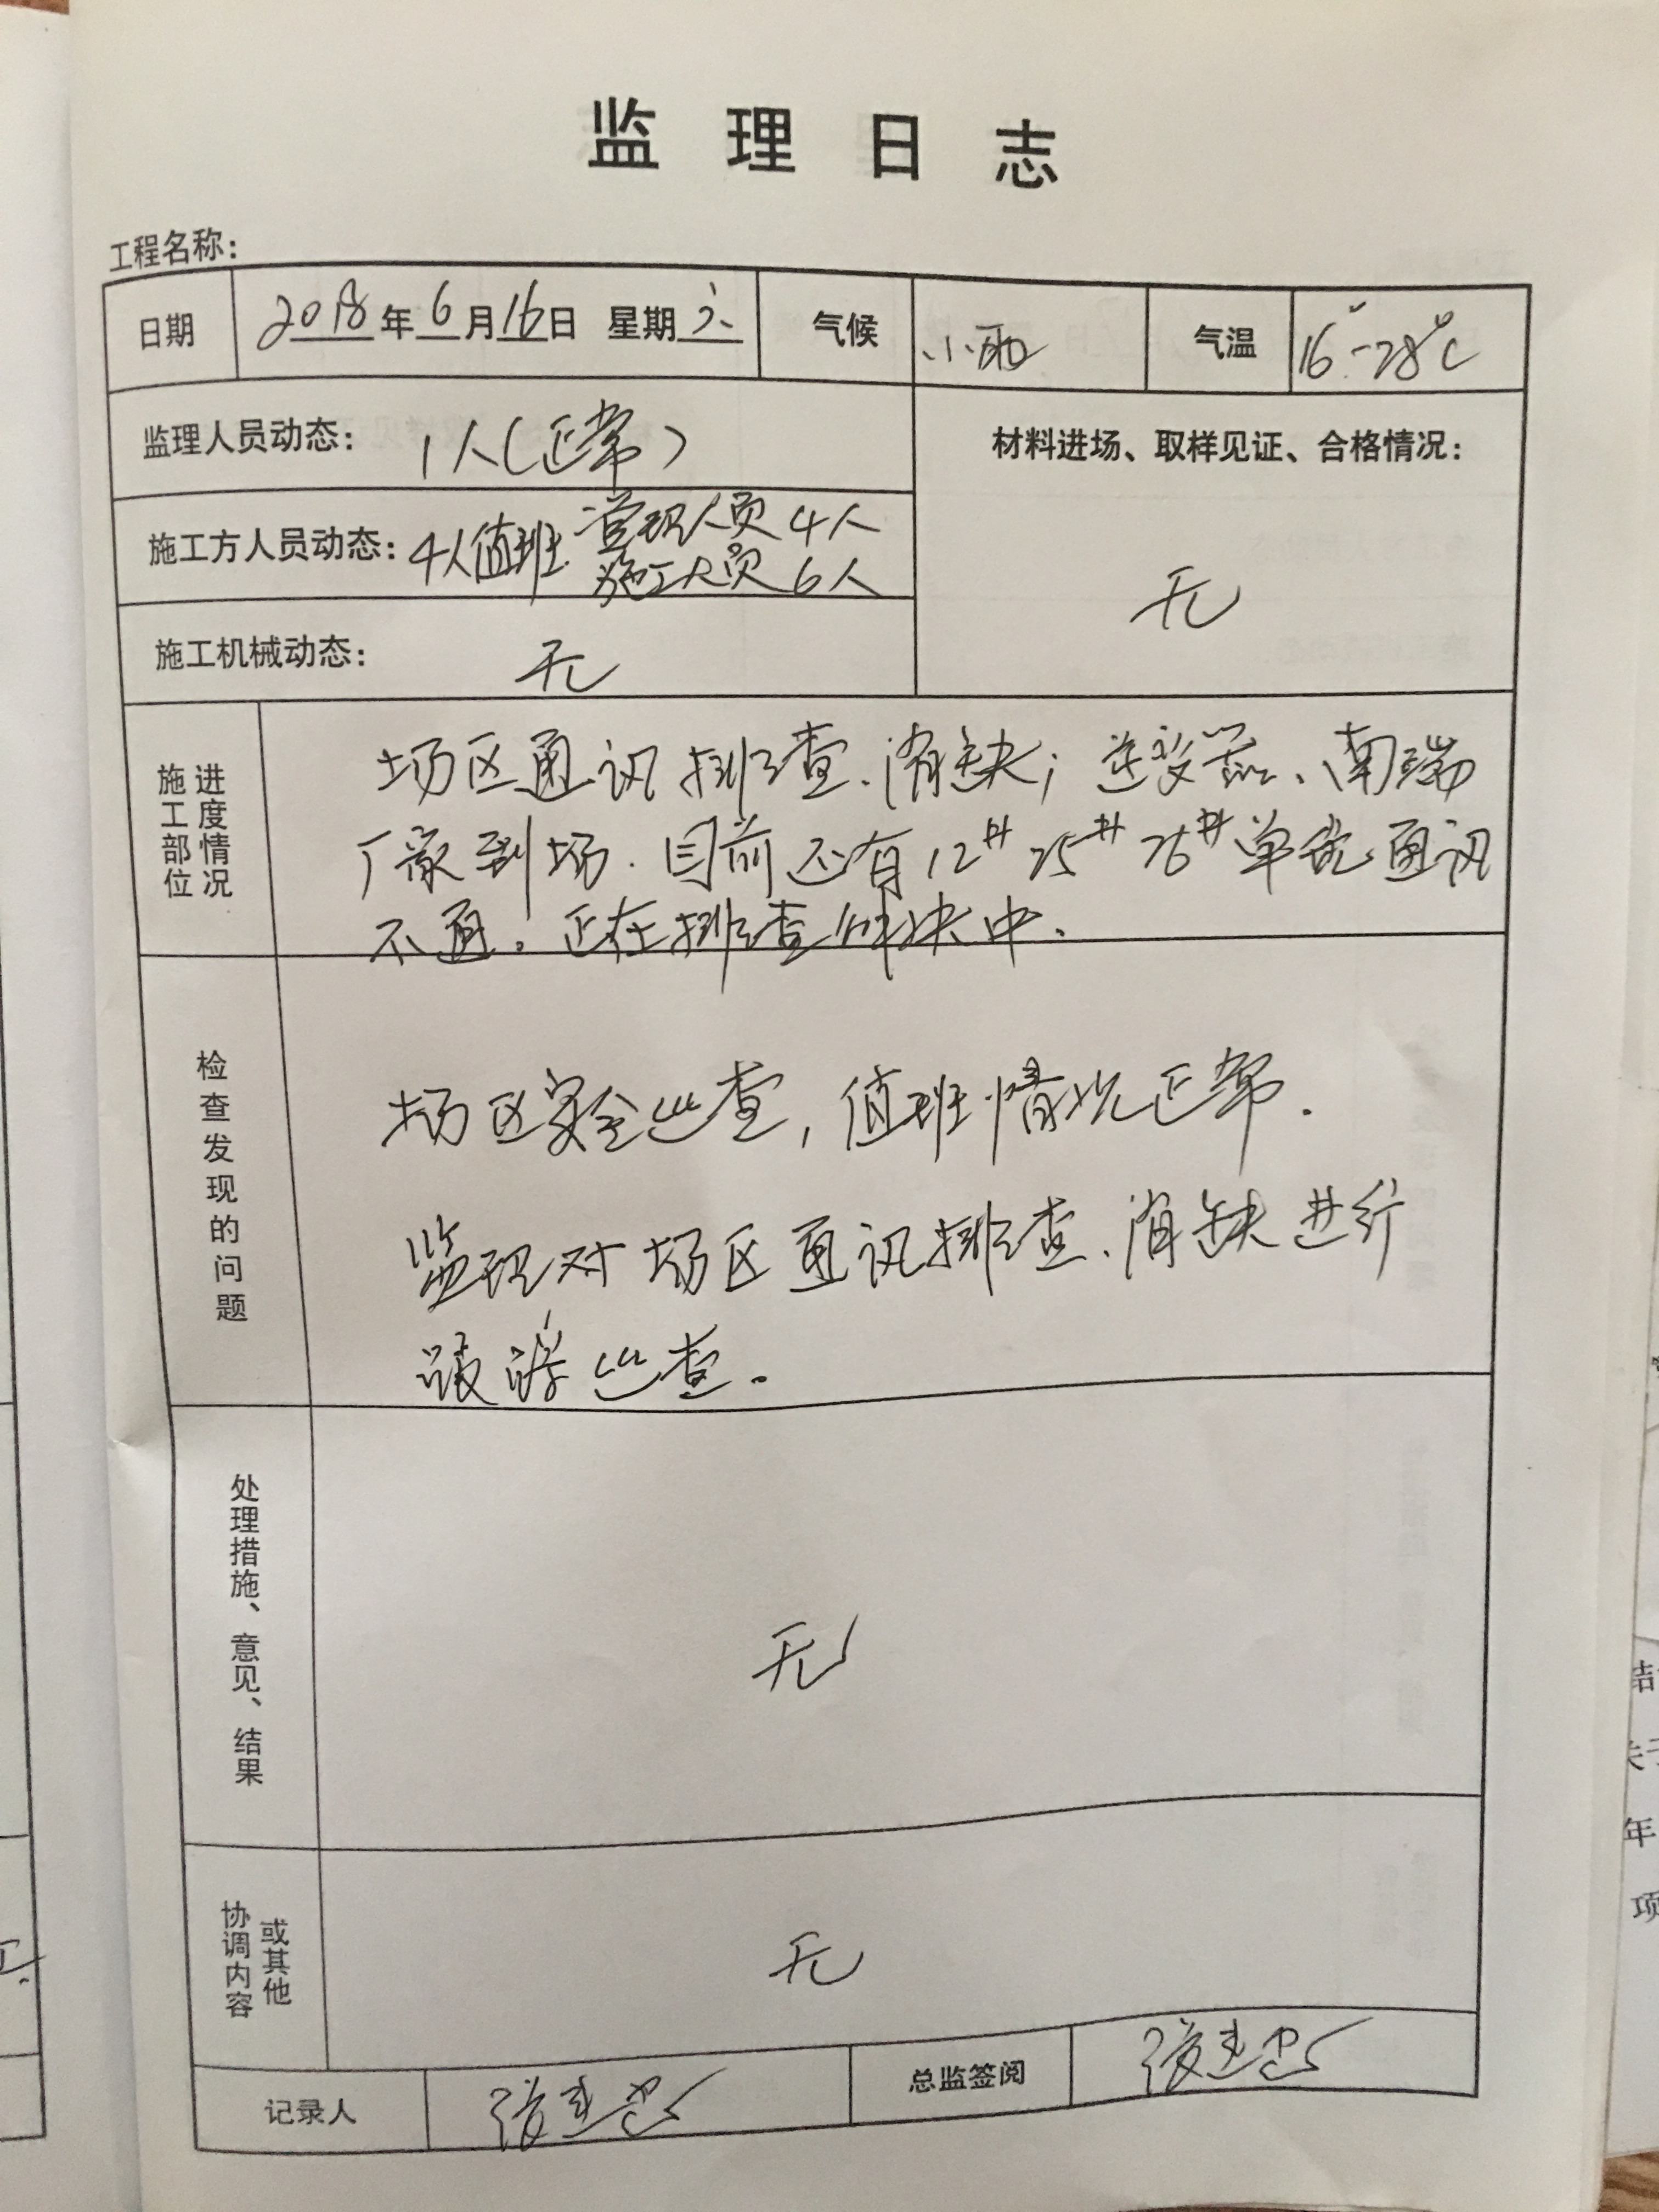 监理日志
工程名称：
日期 2018年6月16日 星期六 气候 小雨 气温 16°-28℃
监理人员动态： 1人（正常）
材料进场、取样见证、合格情况：
无
施工方人员动态： 4人值班 管理人员4人
施工人员6人
施工机械动态： 无
施工部位
进度情况
场区通讯排查、消缺；逆变器、南瑞
厂家到场.目前还有12# 25# 26#单元通讯
不通。正在排查解决中.
检查发现的问题
场区安全巡查，值班情况正常.
监理对场区通讯排查、消缺进行
跟踪巡查。
处理措施、意见、结果
无
协调内容
或其他
无
记录人
总监签阅